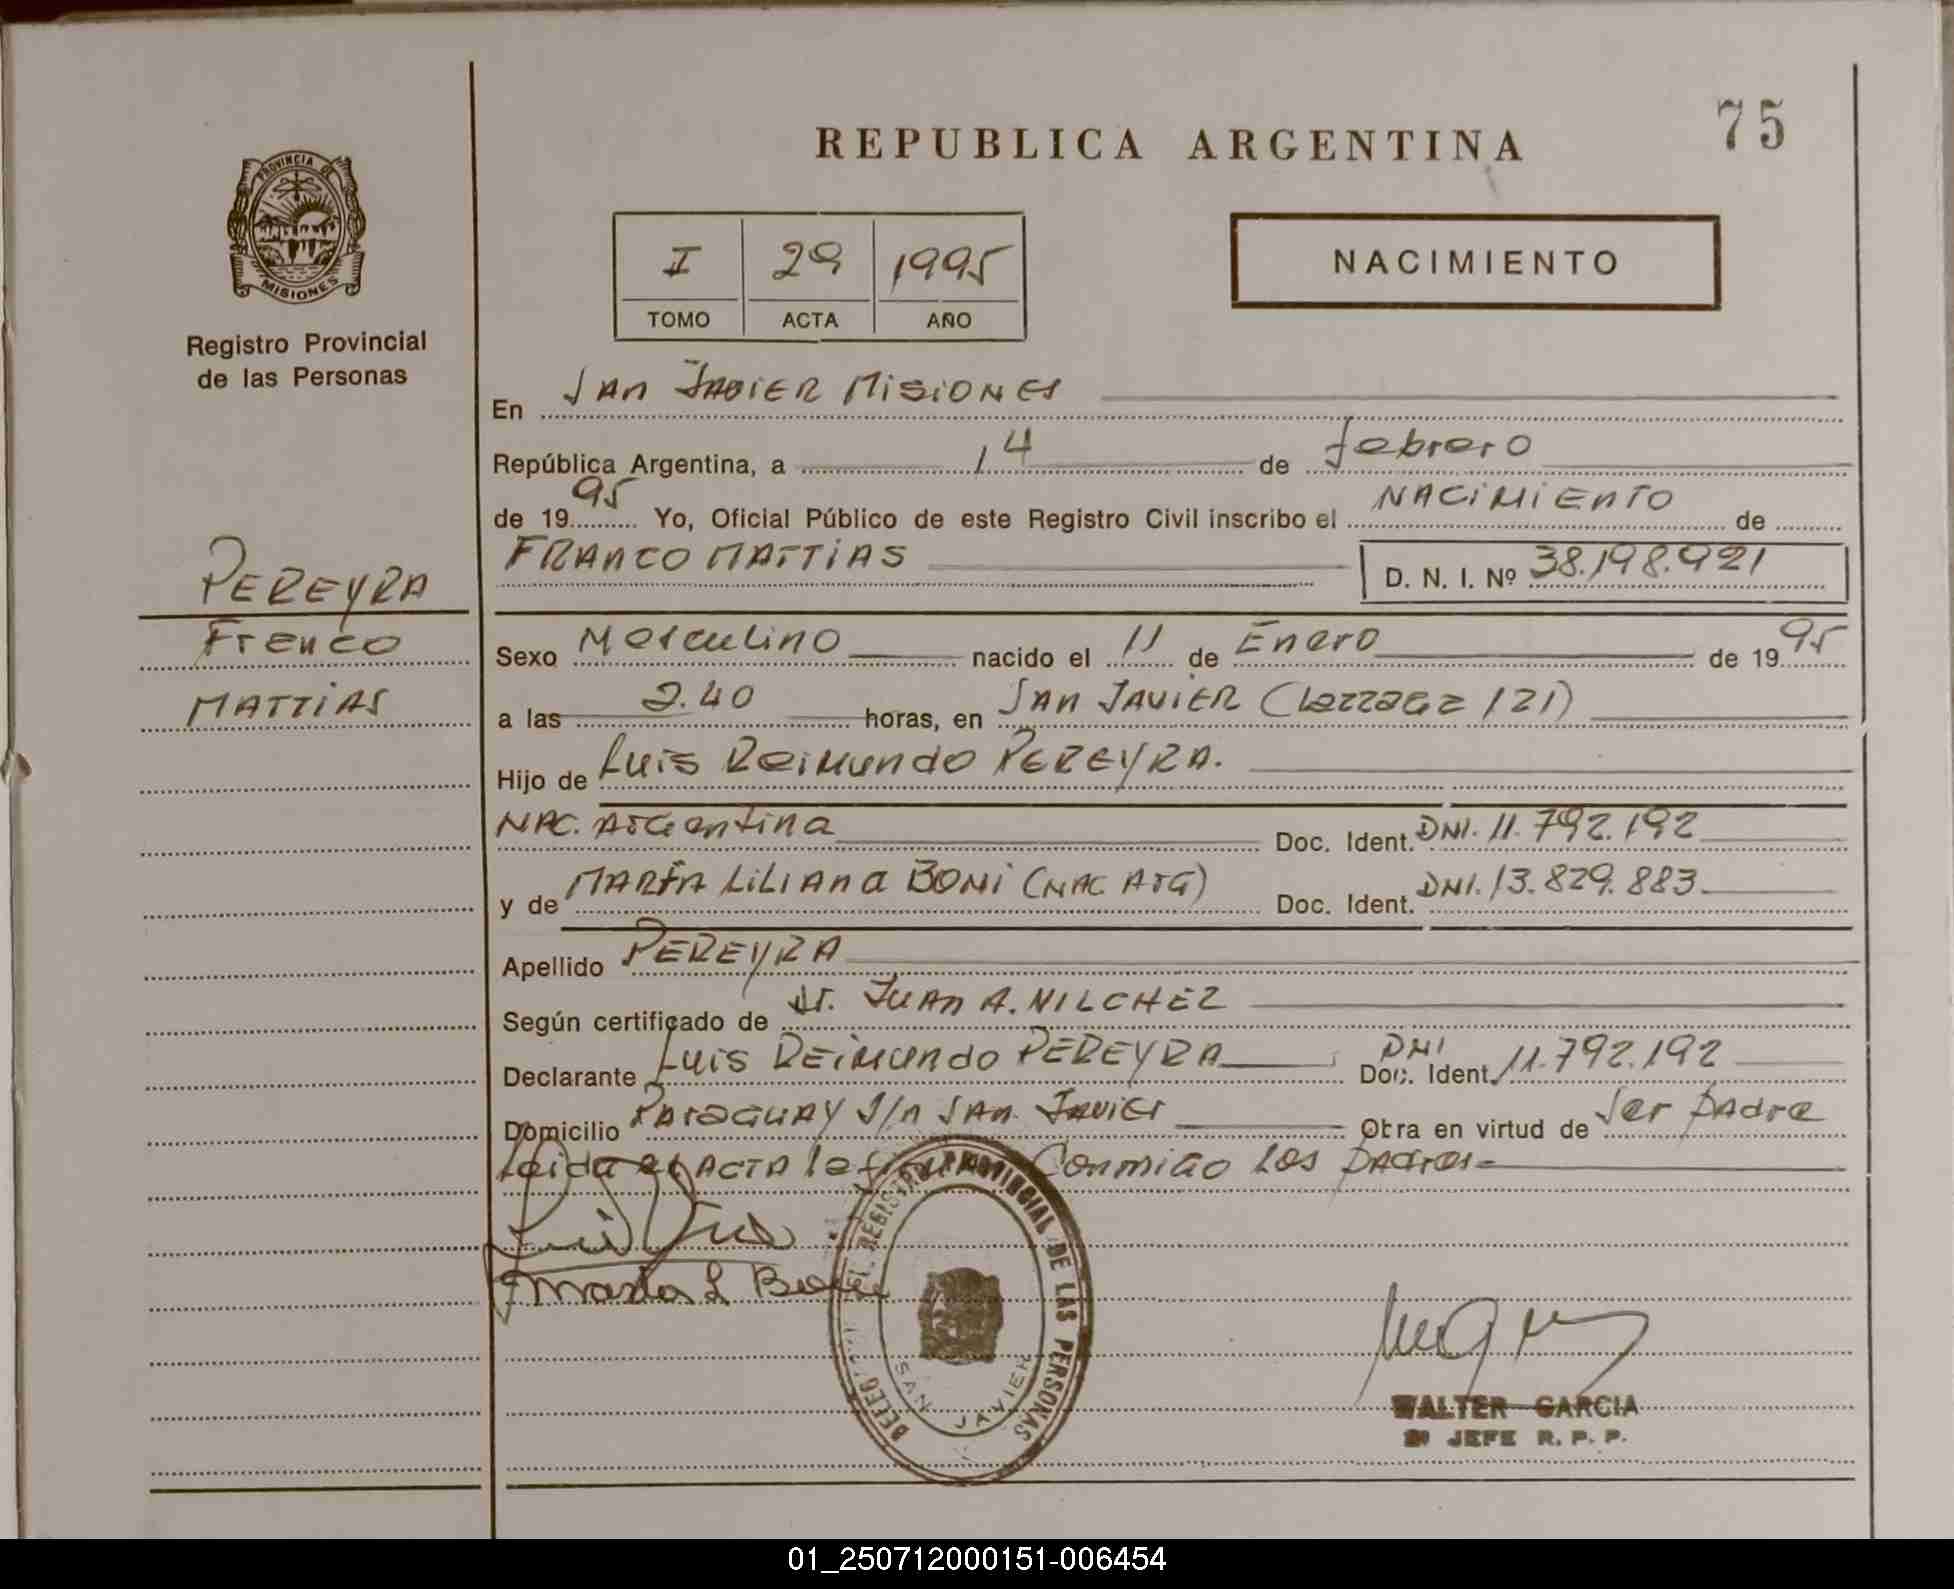 75
REPUBLICA ARGENTINA
PROVINCIA DE
MISIONES
Registro Provincial
de las Personas
I 29 1995
TOMO ACTA AÑO
NACIMIENTO
En SAN JAVIER MISIONES
República Argentina, a 14 de febrero
de 1995 Yo, Oficial Público de este Registro Civil inscribo el NACIMIENTO de
FRANCO MATTIAS D. N. I. Nº 38.198.921
PEREYRA
Franco
MATTIAS
Sexo Masculino nacido el 11 de Enero de 1995
a las 2.40 horas, en SAN JAVIER ( 121)
Hijo de Luis Reimundo PEREYRA.
NAC. Argentina Doc. Ident. DNI. 11.792.192
y de MARÍA LILIANA BONI (NAC ARG) Doc. Ident. DNI. 13.829.883
Apellido PEREYRA
Según certificado de Dr. JUAN A. VILCHEZ
Declarante Luis REIMUNDO PEREYRA Doc. Ident. DNI 11.792.192
Domicilio PARAGUAY S/N SAN JAVIER Obra en virtud de Ser padre
Leida el ACTA la Conmigo Los padres-
DEL REGISTRO PROVINCIAL DE LAS PERSONAS
SAN JAVIER
WALTER GARCIA
JEFE R. P. P.
01_250712000151-006454